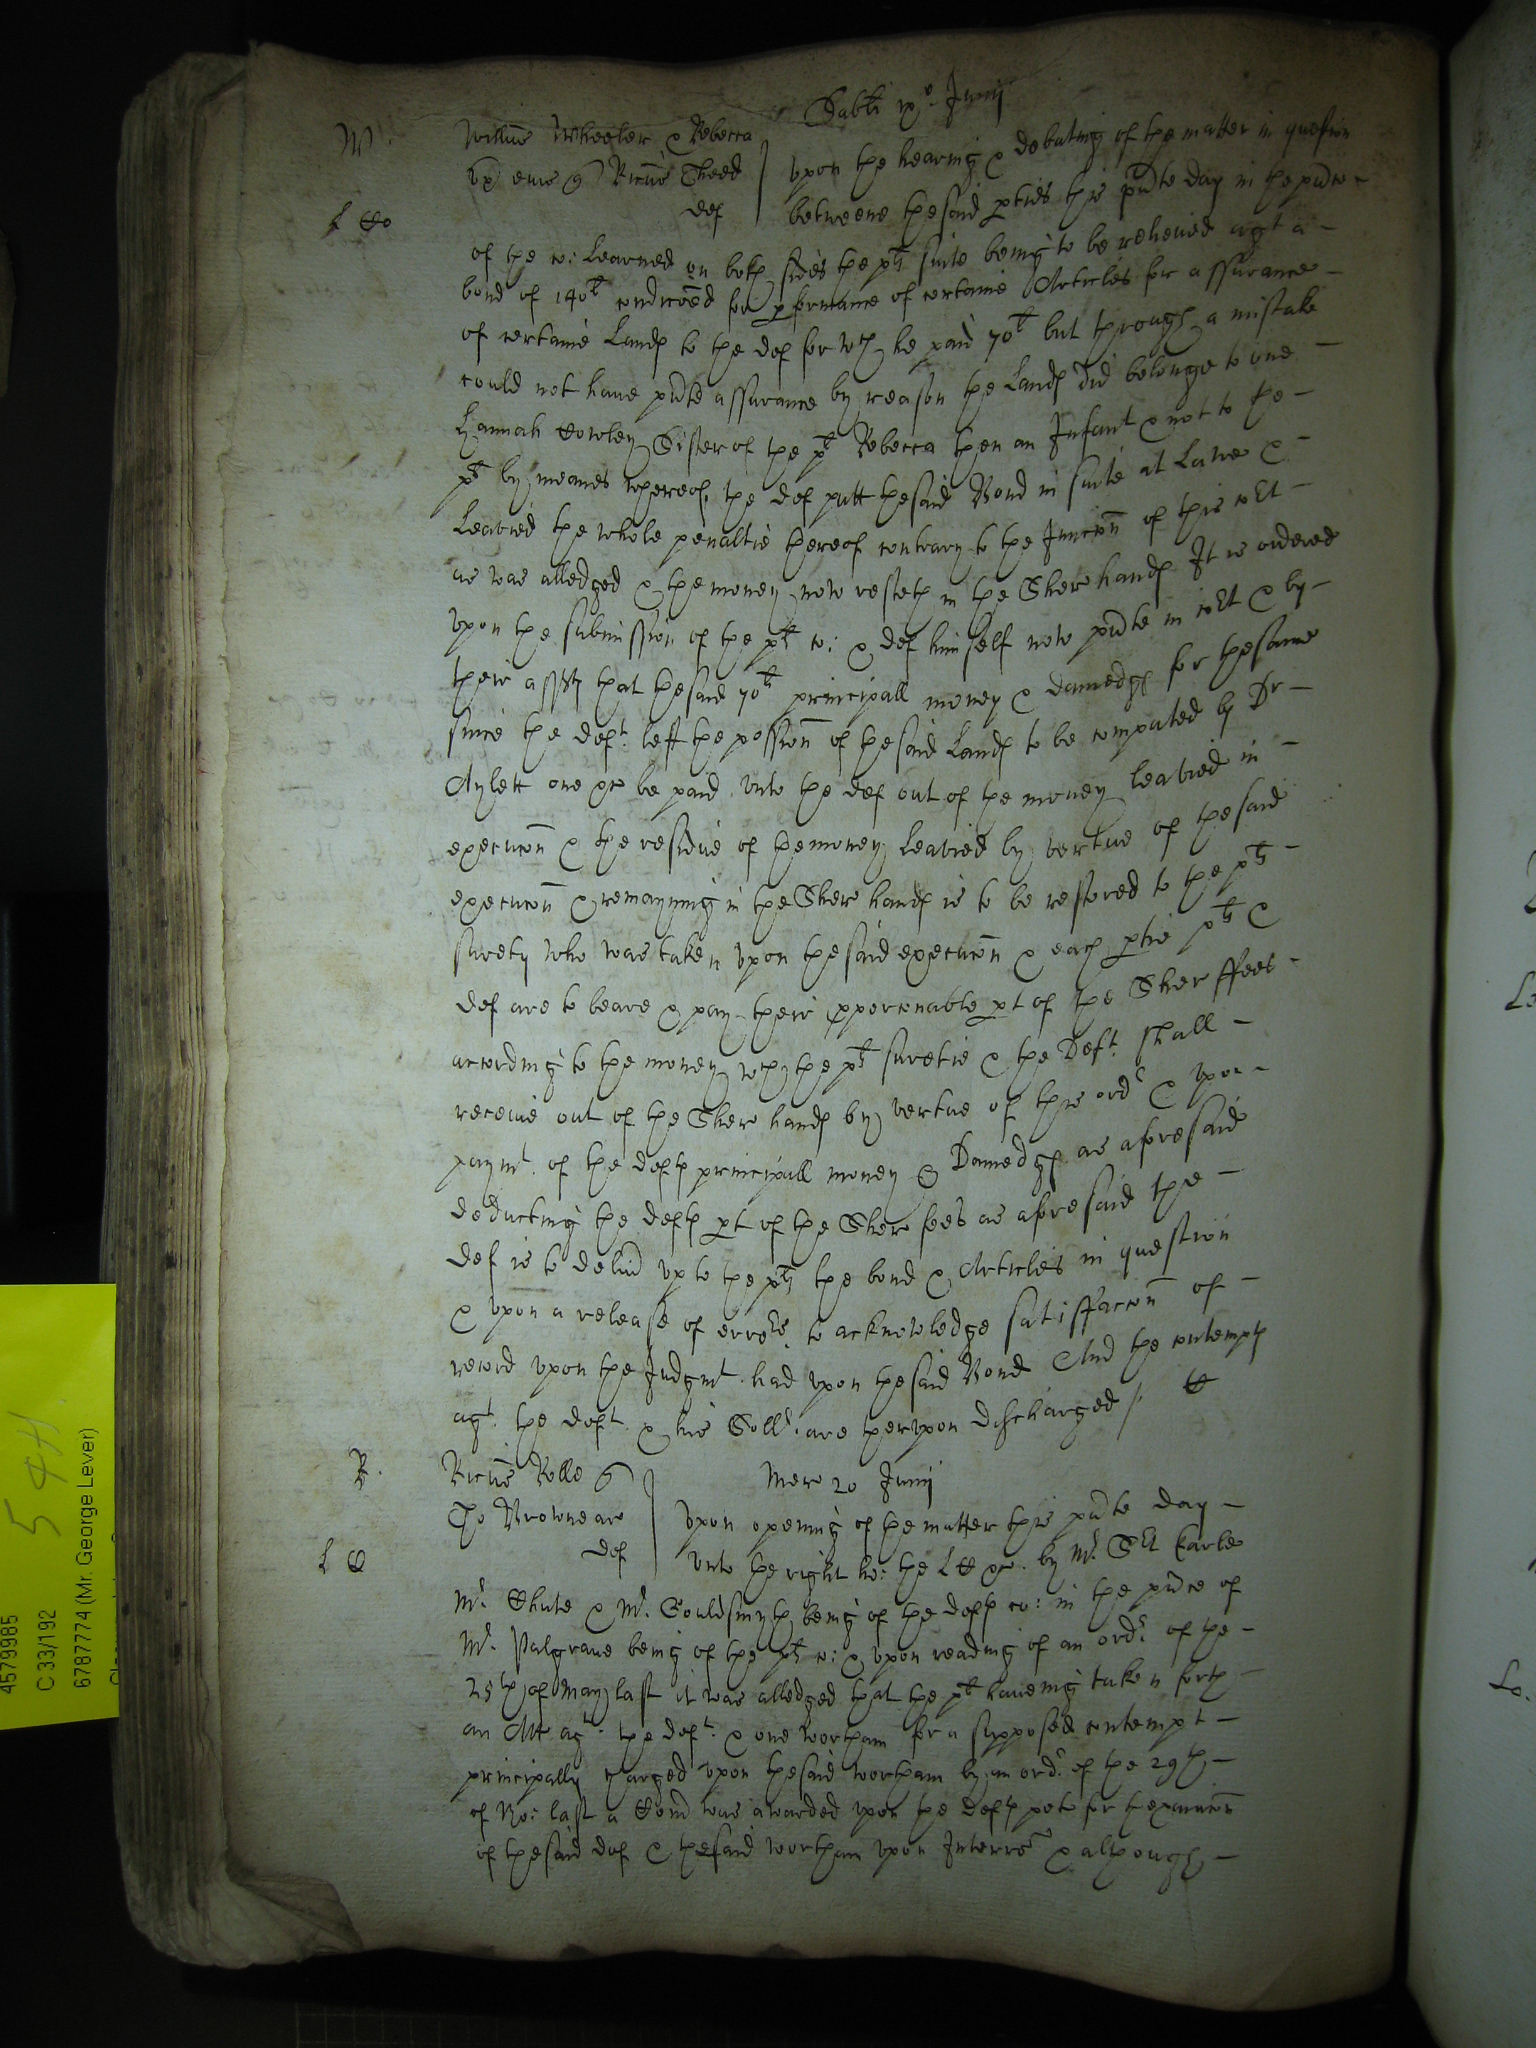 Sabti ixº Junij
W. Willus Wheeler & Rebecca
ux eius Ricus Cheed
def
Upon the hearing & debating of the matter in question
L Co
betweene the said pties this pnte day in the pnce
of the co: Learned on both sides the plts suite being to be relieued agt a
bond of 140li condiconed for pformance of certaine Articles for assurance
of certaine Lands to the def for wch he paid 70li but through a mistake
could not haue pnte assurance by reason the Lands did belonge to one
Hannah Cowley Sister of the pl Rebecca then an Infant & not to the
plt by meanes whereof the def putt the said Bond in suite at Lawe &
Leavied the whole penaltie thereof contrary to the Iniuccon of this Cort
as was alledged & the money now resteth in the Sher hands It is ordered
upon the submission of the plts co: & def himself now pnte in Cort & by
their assent that the said 70li principall money & damedgs for the same
since the deft. left the possion of the said Lands to be computed by Dr
Aylett one &c be paid unto the def out of the money leavied in
execucon & the residue of the money leavied by vertue of the said
execucon & remayning in the Sher hands is to be restored to the plts
surety who was taken upon the said execucon & each ptie plts &
def are to beare & pay their pporconable pt of the Sher ffees
according to the money wch the plts suretie & the Deft. shall
receiue out of the Sher hands by vertue of this ordr & upon
paymt. of the defts principall money & Damedgs as aforesaid
deducting the defts pt of the Sher fees as aforesaid the
def is to deliu up to the plts the bond & Articles in question
& upon a release of errors to acknowledge satisfaccon of
record upon the Judgmt. had upon the said Bond And the contempts
agt. the deft. & his Sollr. are therupon discharged /.
R. Ricus Rolle
Mer 20 Junij
To Browne ar
def
Upon opening of the matter this pnte day
L C
unto the right ho: the L C &c. by Mr. Sit Earle
Mr. Chute & Mr. Gouldsmyth being of the defts co: in the pnce of
Mr. Palgraue being of the plts co: & upon reading of an ordr. of the
25th of May last it was alledged that the plt haueing taken forth
an Att agt. the deft. & one Wortham for a supposed contempt
principally charged upon the said Wortham by an ordr. of the 29th
of No: last a Comn was awarded upon the defts peto for th examicon
of the said def & the said Wortham upon Interrs & although
4579985
C 33/192
6787774 (Mr. George Lever)
544.